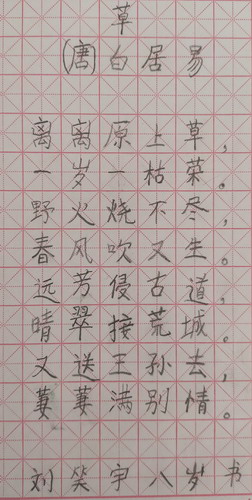 草
(唐)白居易
离离原上草,
一岁一枯荣。
野火烧不尽,
春风吹又生。
远芳侵古道,
晴翠接荒城。
又送王孙去,
萋萋满别情。
刘笑宇八岁书